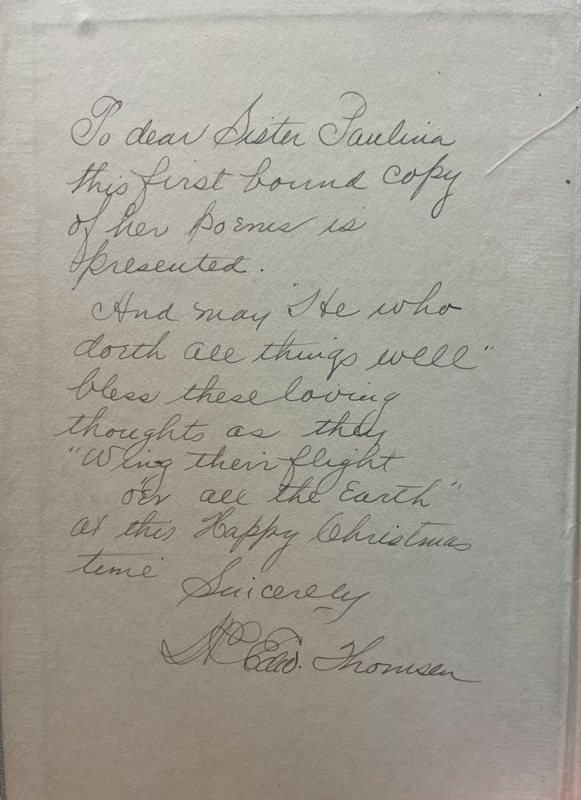 To dear Sister Paulina
this first bound copy
of her poems is
presented.
And may "He who
doeth all things well"
bless these loving
thoughts as they
"Wing their flight
o'er all the Earth"
at this Happy Christmas
time
Sincerely
Edw. Thomsen